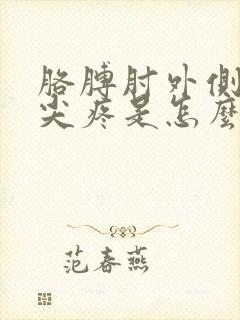 胳膊肘外側
尖疼是怎麼
范春燕